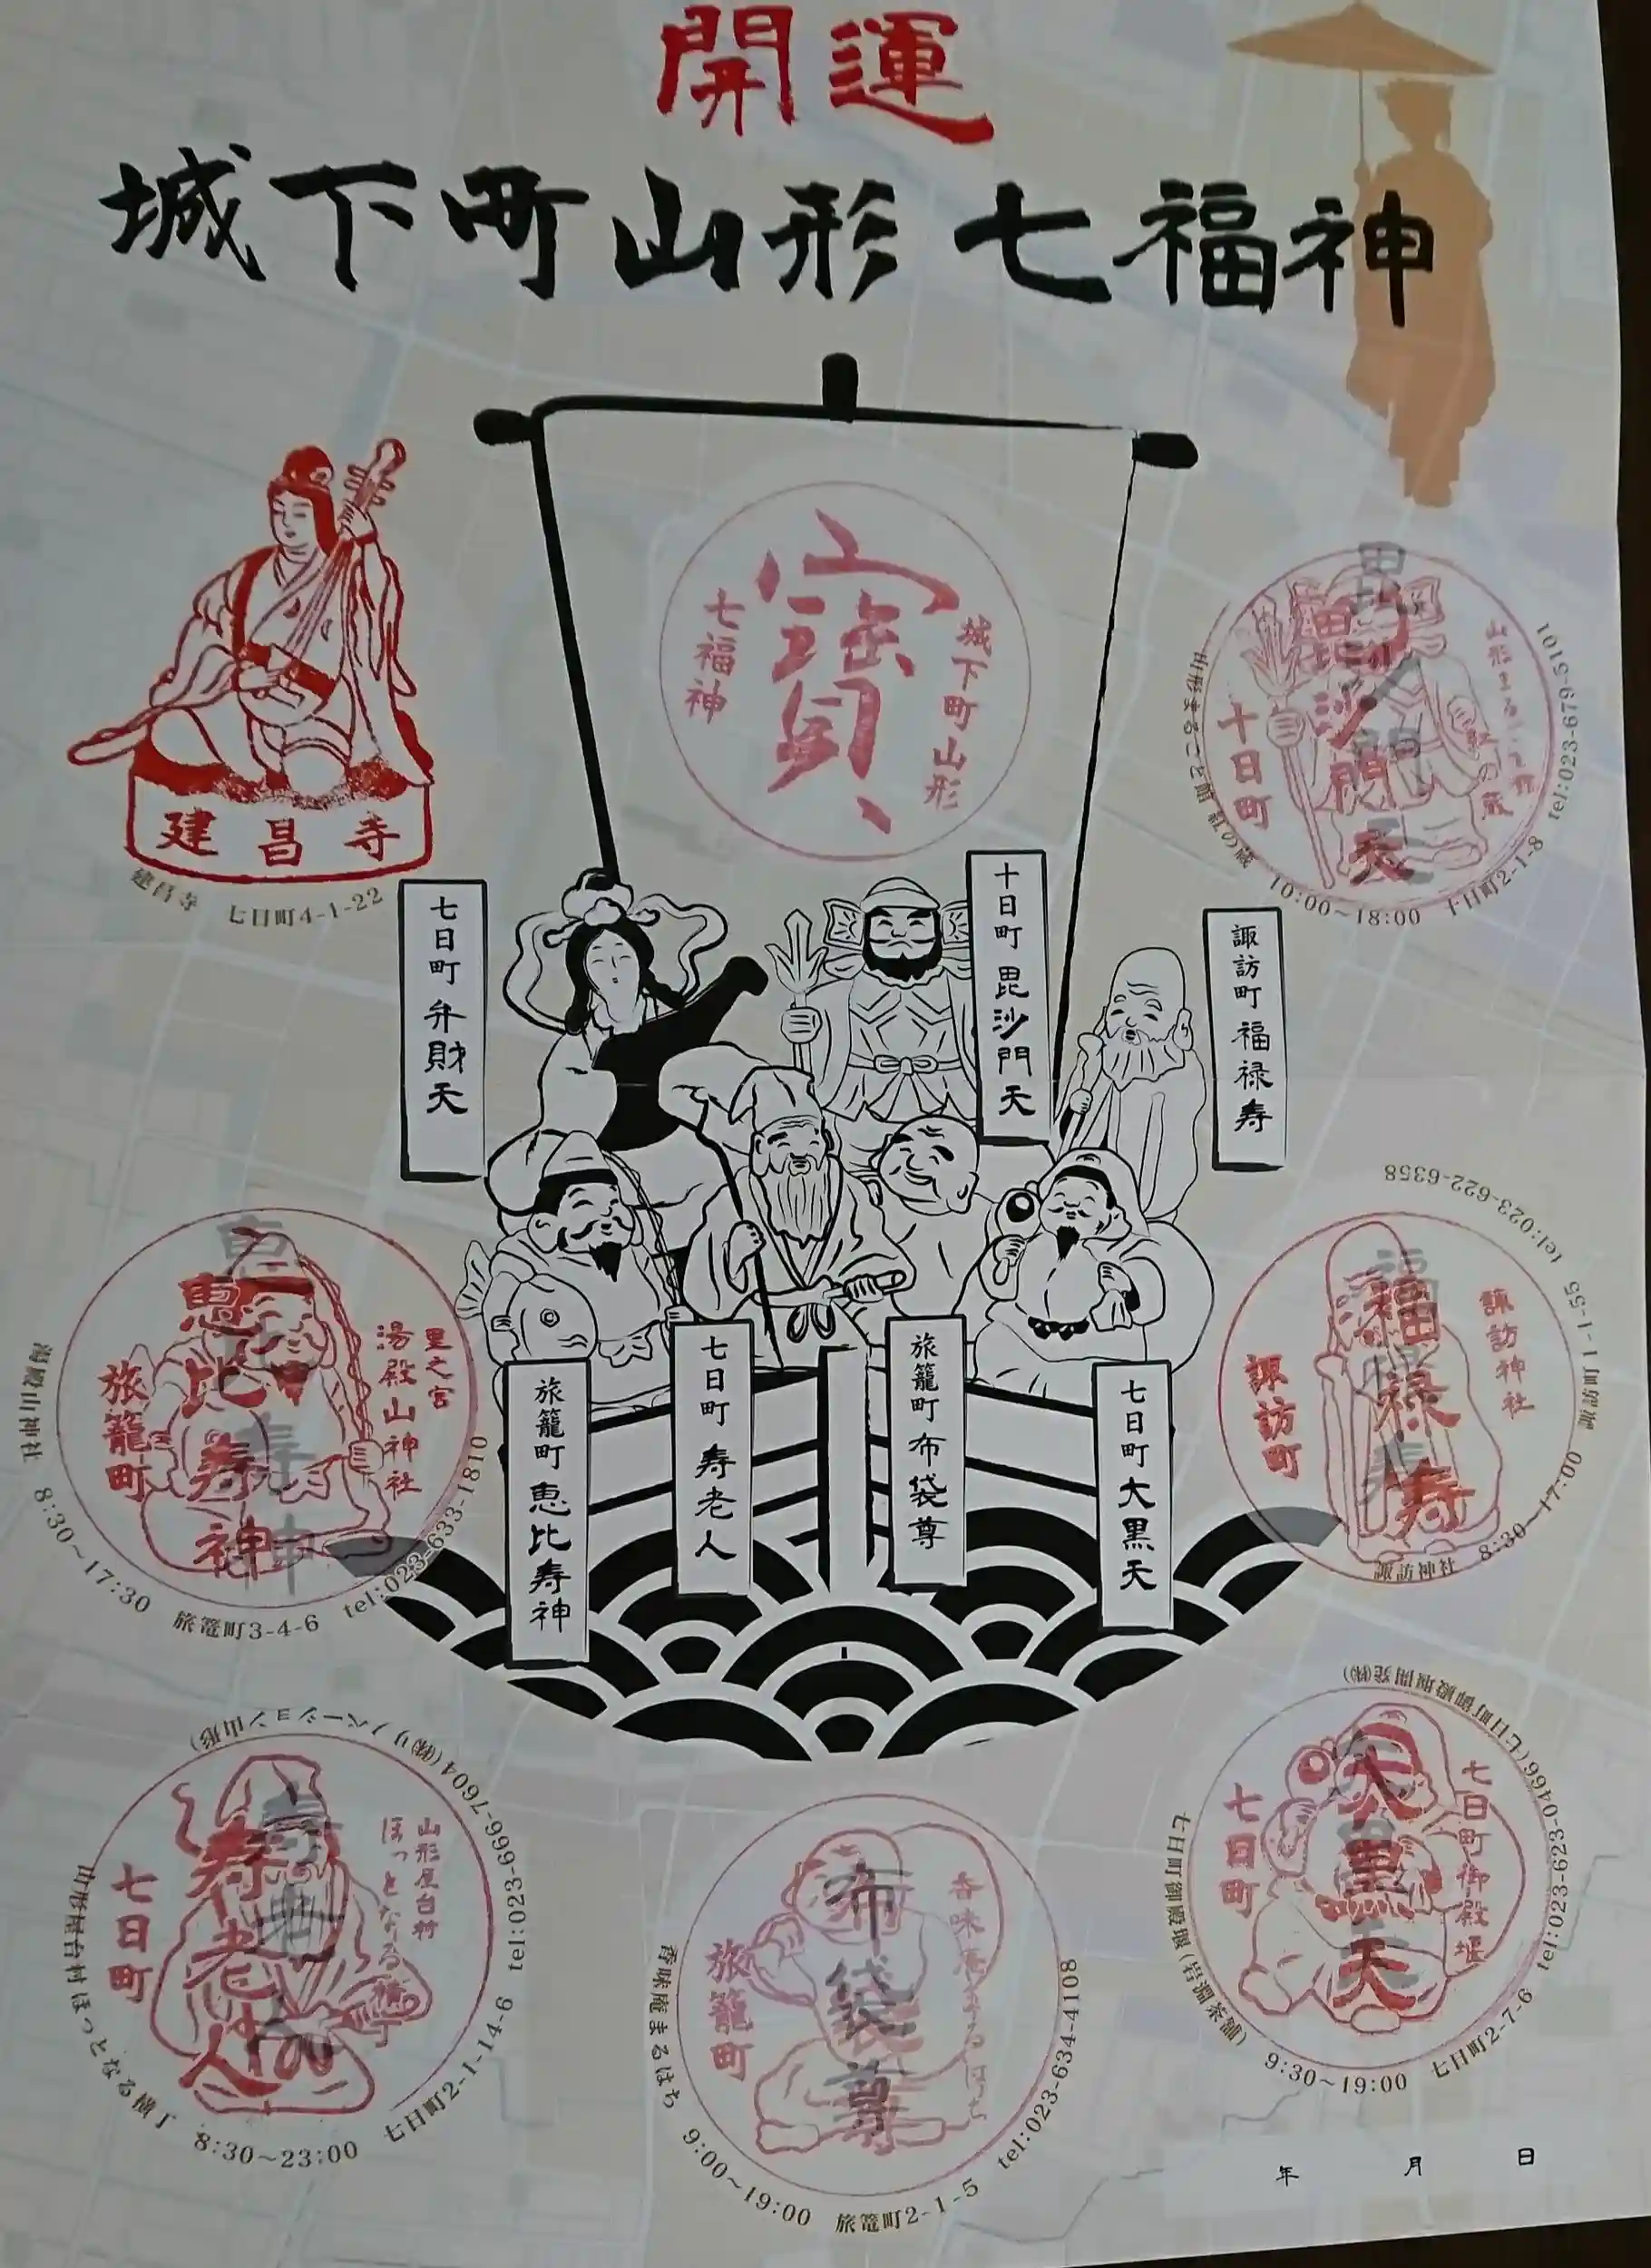 開運
城下町山形 七福神
寳
城下町山形
七福神
建昌寺
建昌寺 七日町4-1-22
毘沙門天
十日町
山形まるごと館 紅の蔵 10:00~18:00 十日町2-1-8 tel:023-679-5101
七日町 弁財天
十日町 毘沙門天
諏訪町 福禄寿
旅籠町 恵比寿神
七日町 寿老人
旅籠町 布袋尊
七日町 大黒天
恵比寿神
旅籠町
里之宮
湯殿山神社
湯殿山神社 8:30~17:30 旅篭町3-4-6 tel:023-633-1810
福禄寿
諏訪町
諏訪神社
諏訪神社 8:30~17:00 諏訪町1-1-55 tel:023-622-6358
寿老人
七日町
山形屋台村
ほっとなる横丁
山形屋台村ほっとなる横丁 8:30~23:00 七日町2-1-14-6 tel:023-666-7604(㈱リノベーション山形)
布袋尊
旅籠町
香味庵まるはち
香味庵まるはち 9:00~19:00 旅篭町2-1-5 tel:023-634-4108
大黒天
七日町
七日町御殿堰
七日町御殿堰(岩淵茶舗) 9:30~19:00 七日町2-7-6 tel:023-623-0466(七日町御殿堰開発㈱)
年 月 日